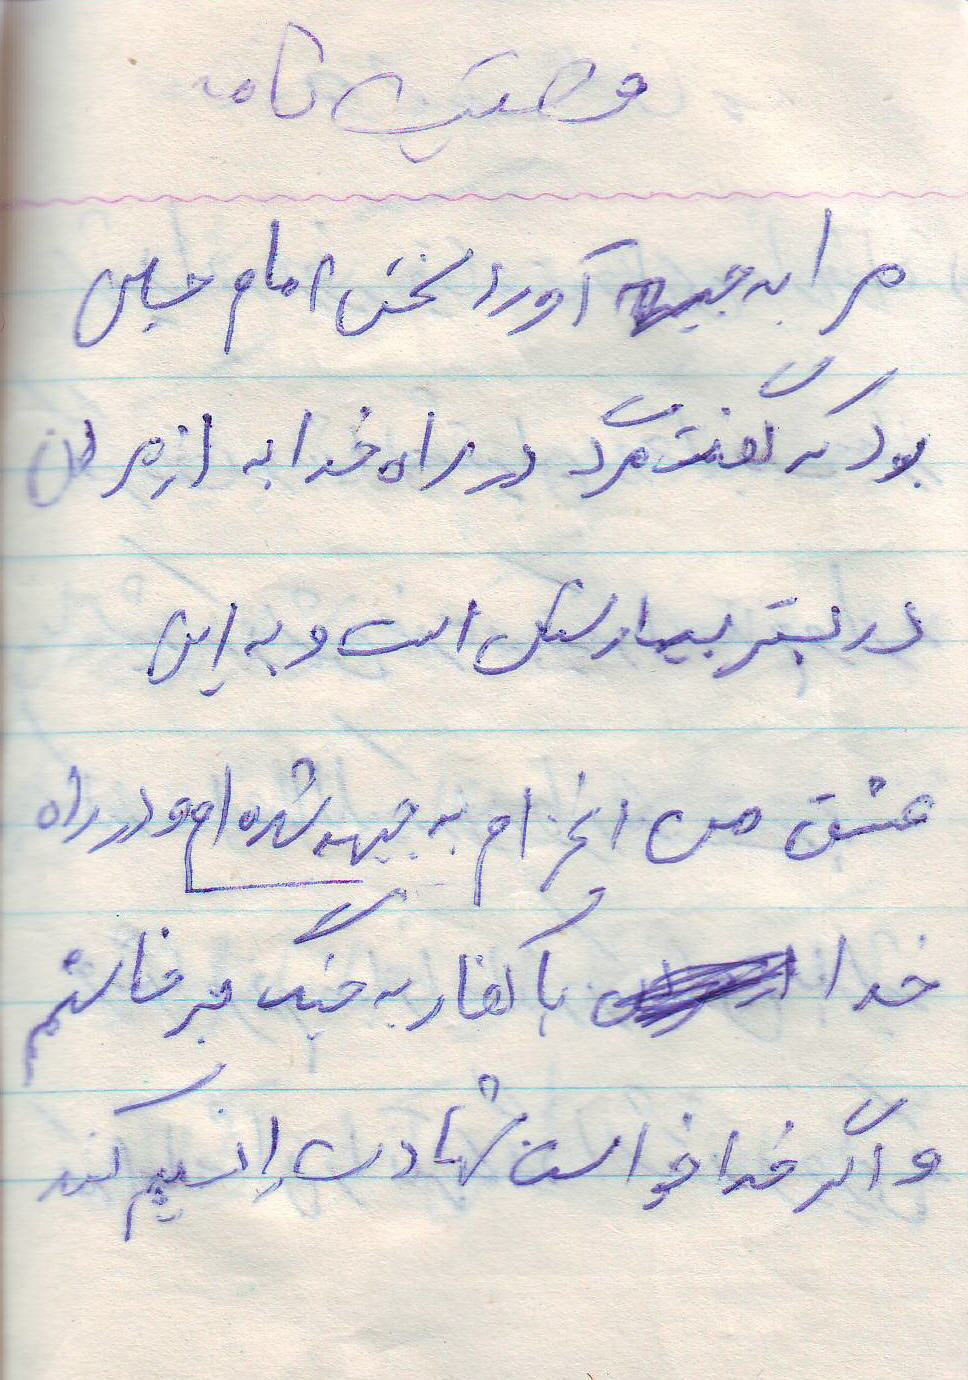 وصیت نامه
مرا به جبهه آورد سخن امام حسین
بود که گفت مرگ در راه خدا به از مردن
در بستر بیماریش است و به این
عشق من اعزام به جبهه شده ام و در راه
خدا با کفار به جنگ بر خاستم
و اگر خدا خواست شهادت را نسیبم کند